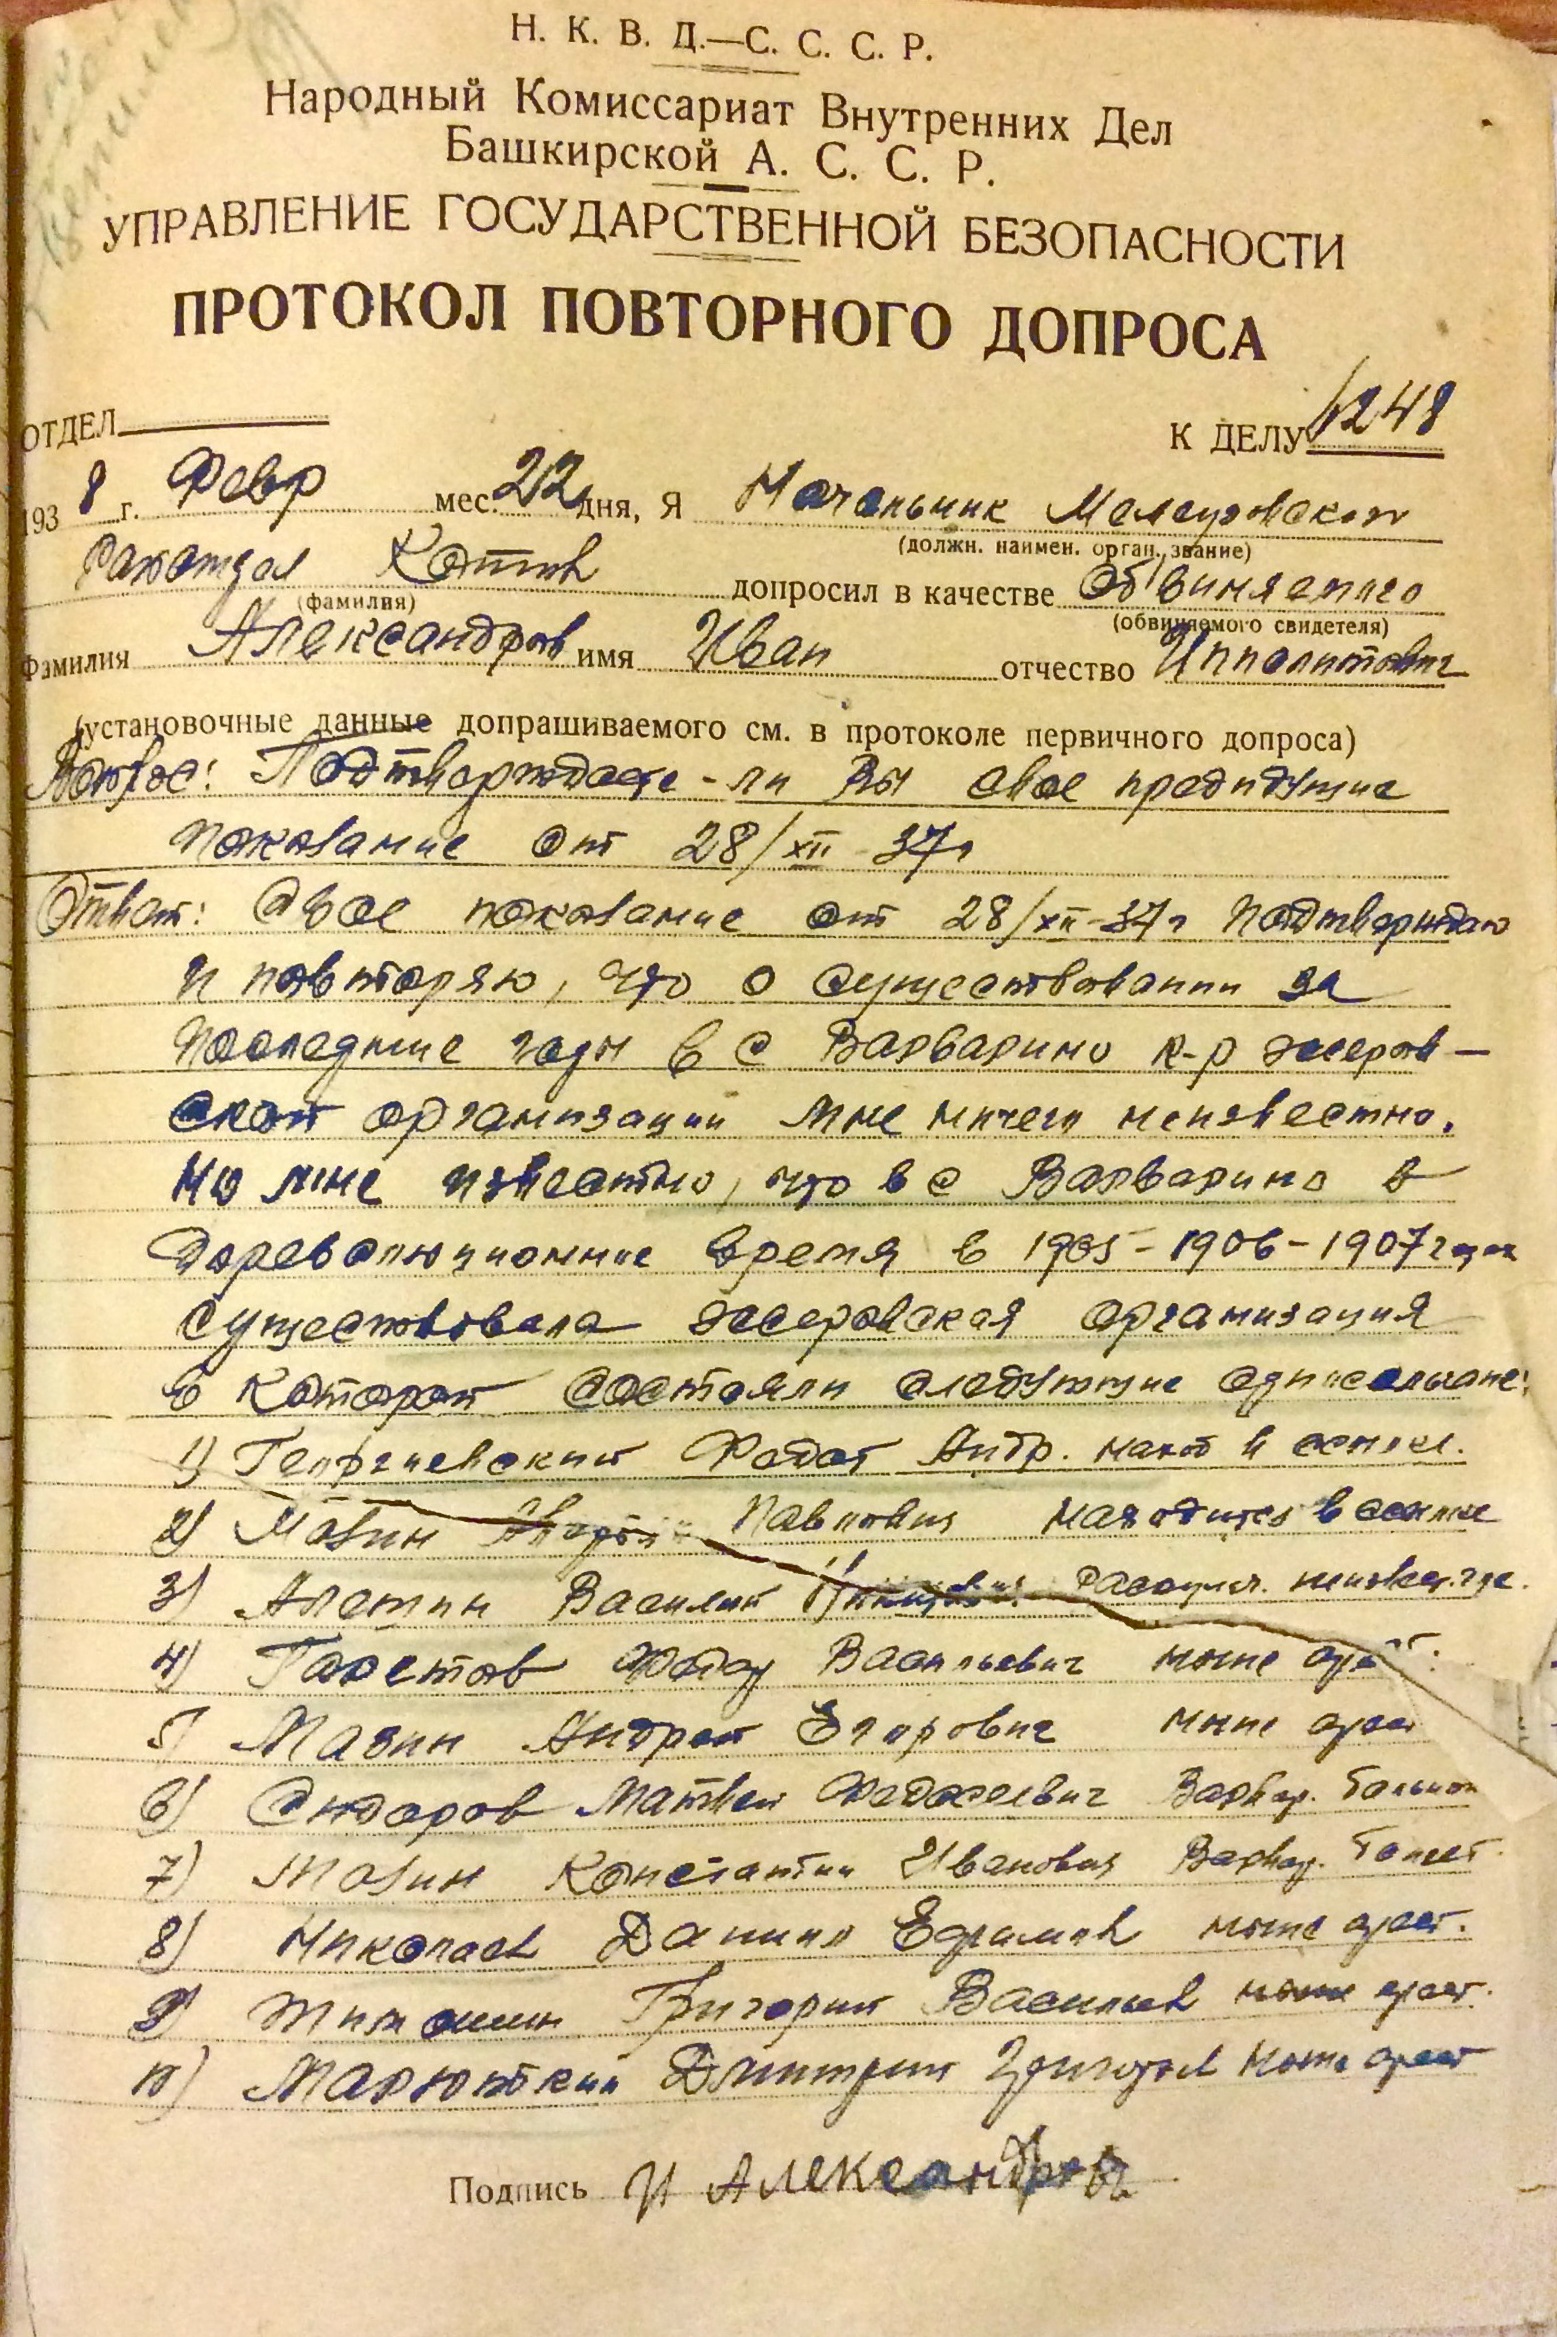 Н. К. В. Д.—С. С. С. Р.
Народный Комиссариат Внутренних Дел
Башкирской А. С. С. Р.
УПРАВЛЕНИЕ ГОСУДАРСТВЕННОЙ БЕЗОПАСНОСТИ
ПРОТОКОЛ ПОВТОРНОГО ДОПРОСА
ОТДЕЛ
К ДЕЛУ 6248
1938 г. Февр мес. 22 дня, Я Начальник Мелеузовскот
(должн. наимен. орган., звание)
Райотдел Котов допросил в качестве Обвиняемого
(фамилия) (обвиняемого свидетеля)
Фамилия Александров имя Иван отчество Ипполитович
(установочные данные допрашиваемого см. в протоколе первичного допроса)
Вопрос: Подтверждаете-ли Вы свое предидущие
показание от 28/XII-37г
Ответ: Свое показание от 28/XII-37г подтверждаю
и повторяю, что о существовании за
последние годы в с Варварино к-р эсеров-
ской организации мне ничего неизвестно.
Но мне известно, что в с Варварино в
дореволюционное время в 1905-1906-1907 годах
существовала эссеровская организация
в которой состояли следующие односельчане:
1) Георгиевский Федот Андр. наход в ссылке.
2) Мазин Павлович находится в ссылке
3) Алетин Василий Никитович неизвест. где.
4) Федор Васильевич ныне арест.
5) Мазин Андрей Егорович ныне арест
6) Сидоров Матвей Федосеевич Варвар. сельсов
7) Мазин Константин Иванович Варвар.
8) Николаев Данил Ефимов ныне арест.
9) Тимошин Григорий Васильев ныне арест.
10) Марюткин Дмитрий Григорьев ныне арест
Подпись И Александров